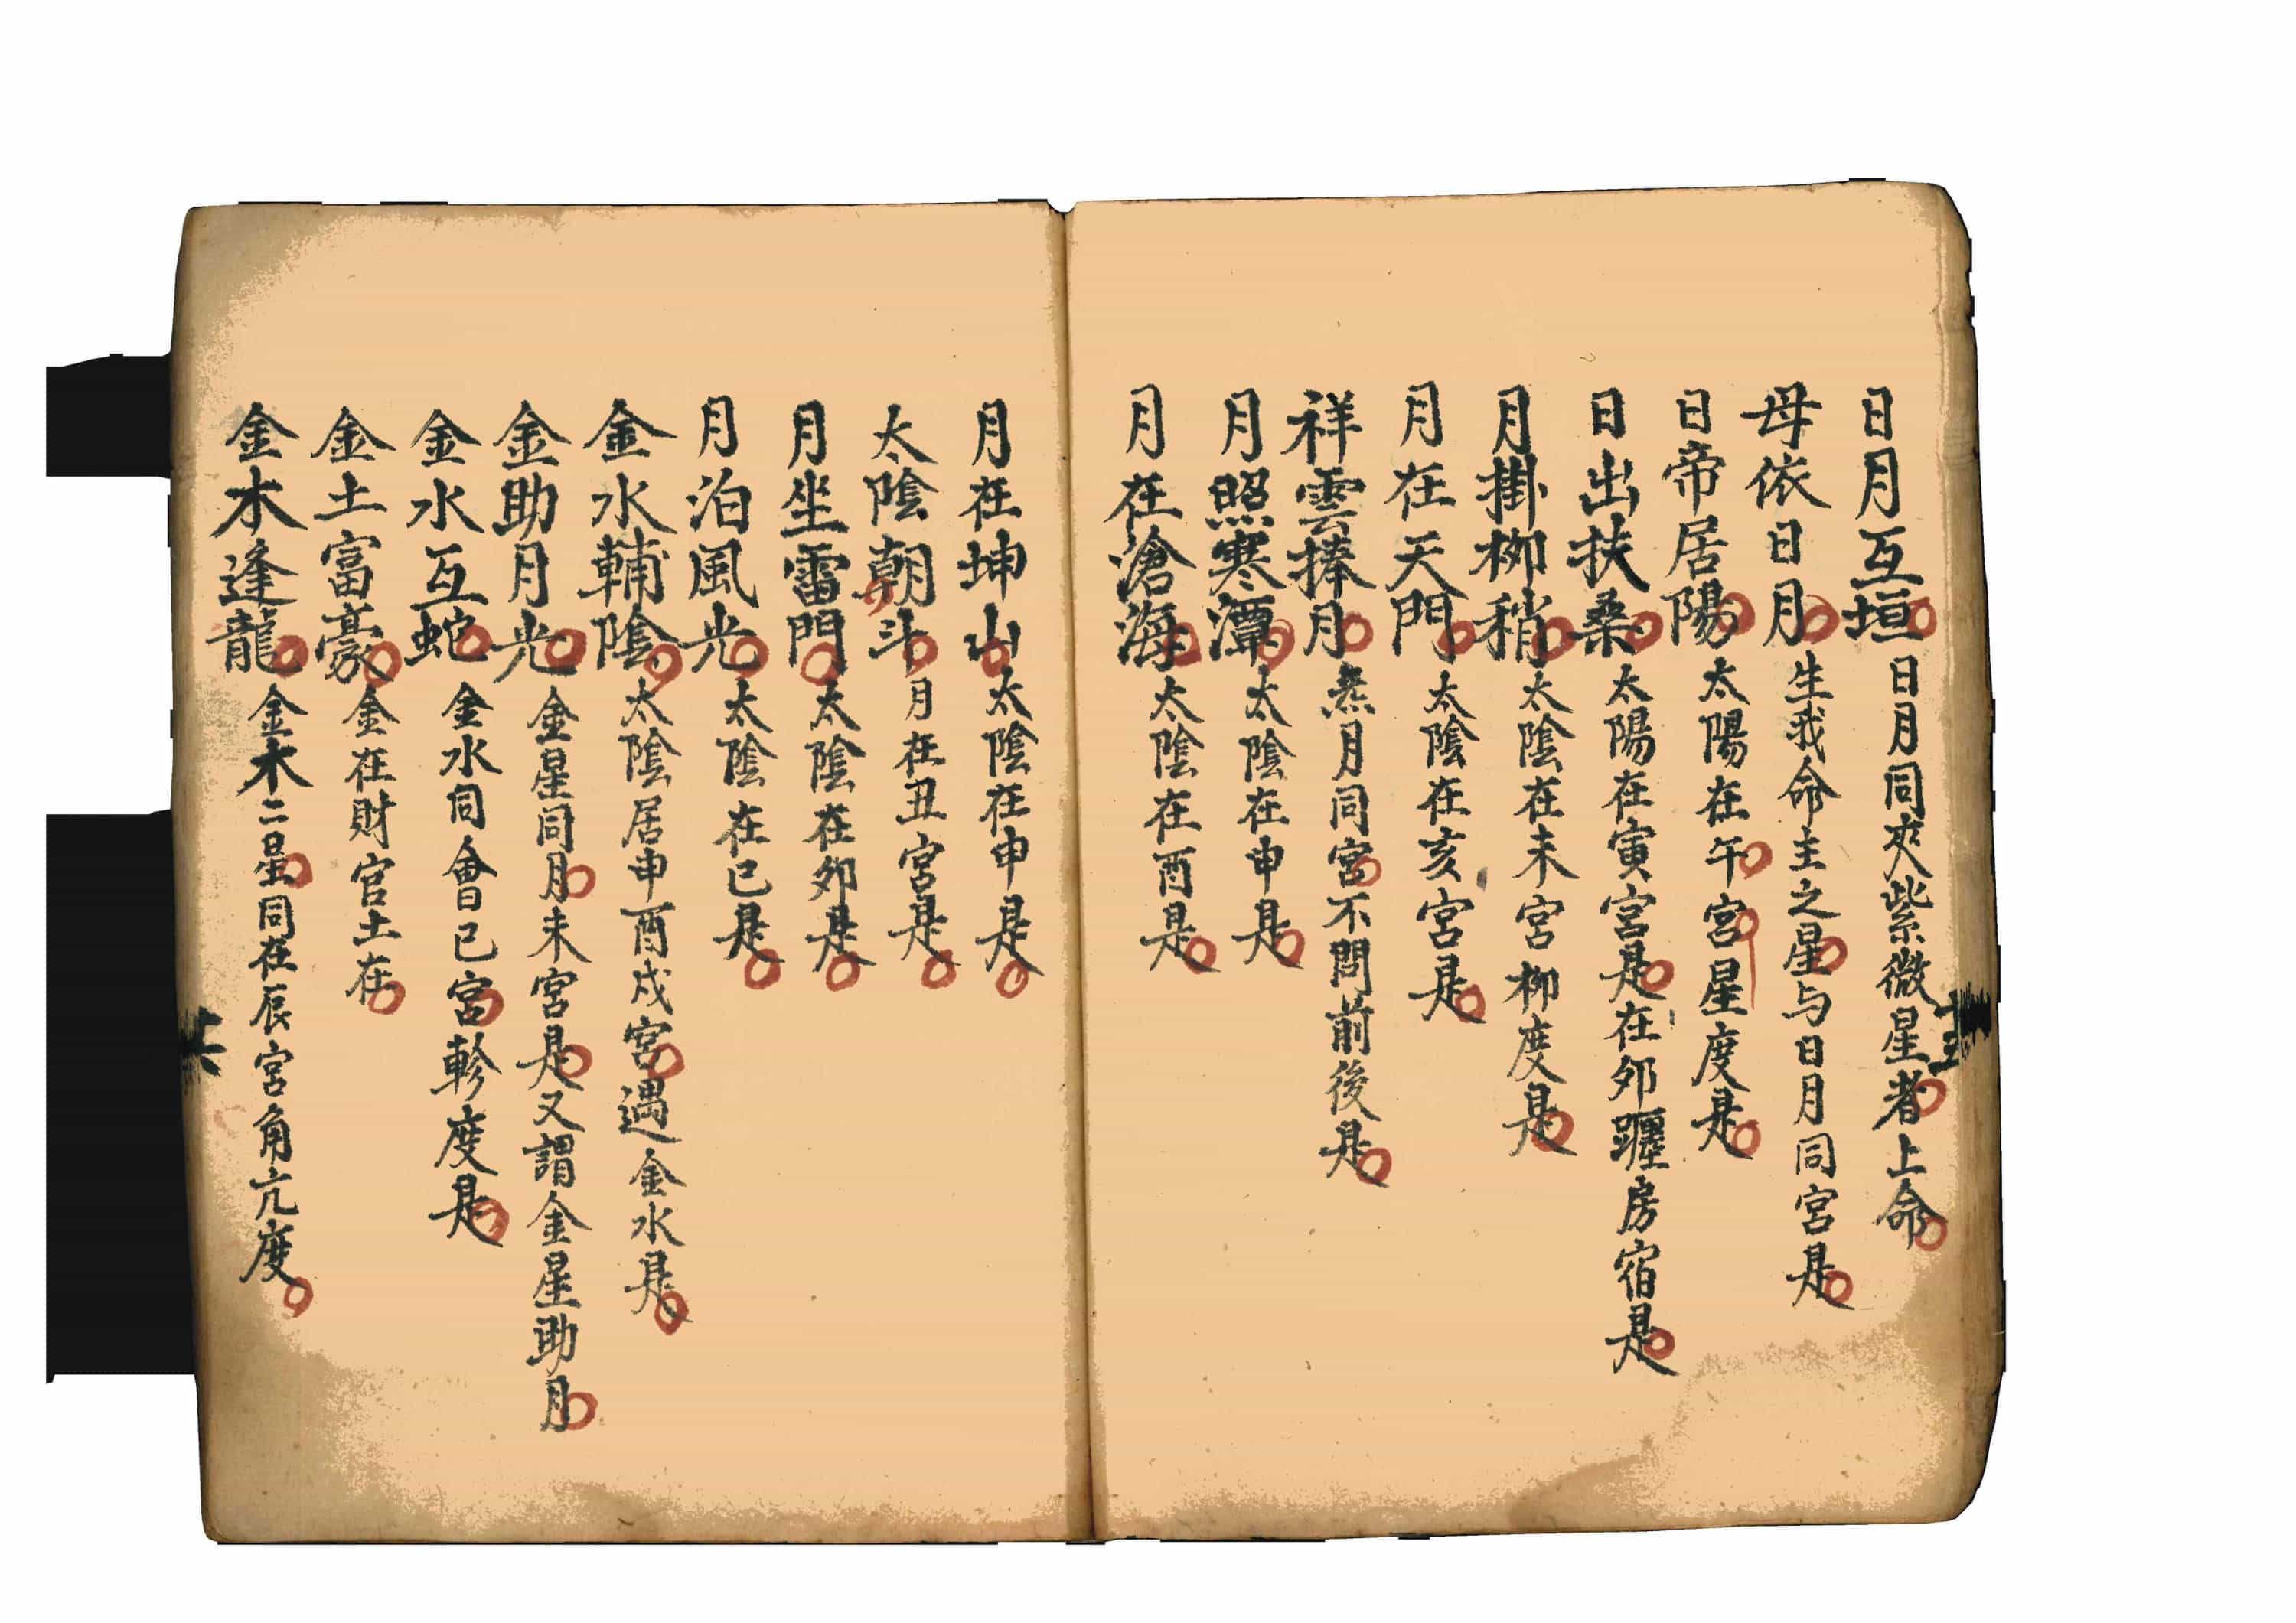 日月互垣 日月同夾紫微星者上命
母依日月 生我命主之星与日月同宮是
日帝居陽 太陽在午宮星度是
日出扶桑 太陽在寅宮是在夘躔房宿是
月掛柳稍 太陰在未宮柳度是
月在天門 太陰在亥宮是
祥雲捧月 炁月同宮不問前後是
月照寒潭 太陰在申是
月在滄海 太陰在酉是
月在坤山 太陰在申是
太陰朝斗 月在丑宮是
月坐雷門 太陰在夘是
月泊風光 太陰在巳是
金水輔陰 太陰居申酉戌宮遇金水是
金助月光 金星同月未宮是又謂金星助月
金水互蛇 金水同會巳宮軫度是
金土富豪 金在財官土在
金木逢龍 金木二星同在辰宮角亢度